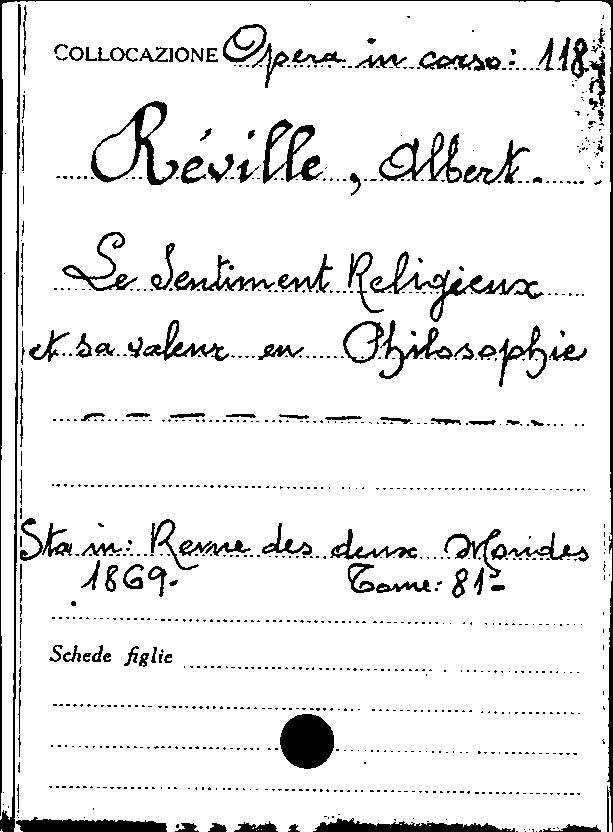 COLLOCAZIONE Opera in corso: 118
Réville, Albert.
Le Sentiment Religieux
et sa valeur en Philosophie
Sta in: Revue des deux Mondes
1869. Tome: 81º
Schede figlie